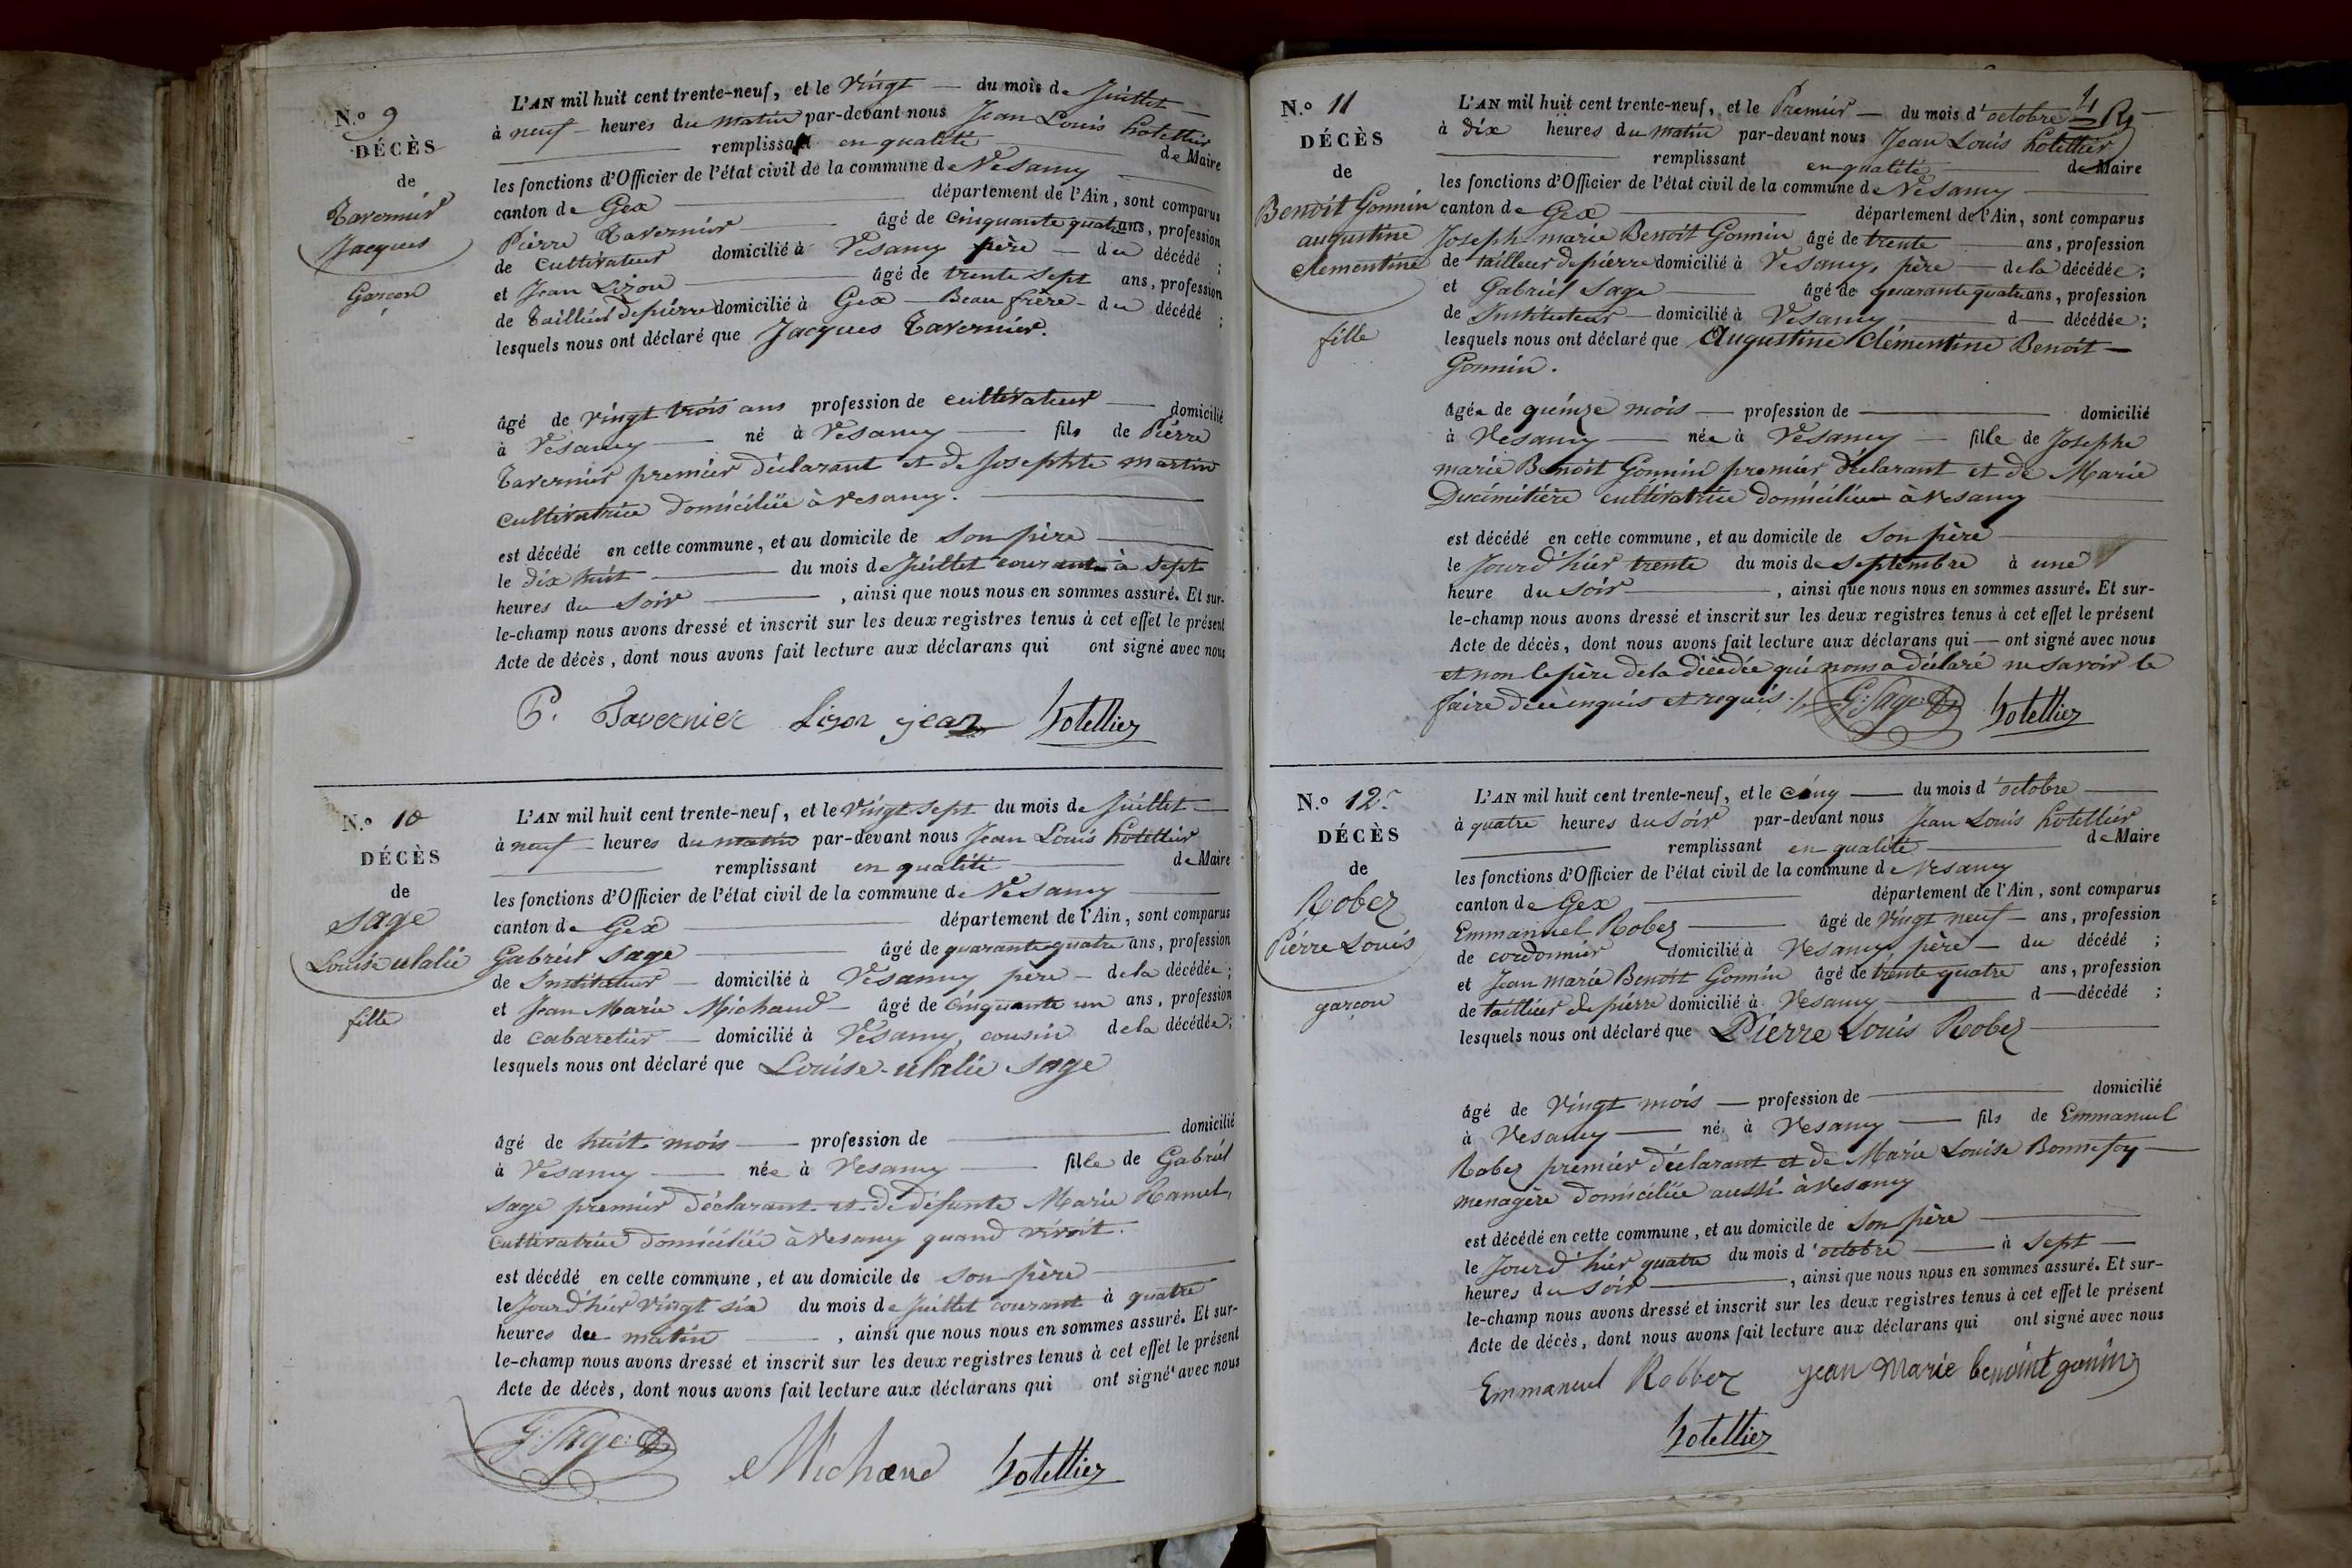 N.o 9
DÉCÈS
de
Tavernier
Jacques
Garçon
L'AN mil huit cent trente-neuf, et le Vingt — du mois de Juillet
à neuf heures du matin par-devant nous Jean Louis hotellier
remplissant en qualité de Maire
les fonctions d'Officier de l'état civil de la commune de Vesancy
canton de Gex département de l'Ain, sont comparus
Pierre Tavernier âgé de cinquante quatre ans, profession
de Cultivateur domicilié à Vesancy père — du décédé ;
et Jean Lizon âgé de trente sept ans, profession
de Tailleur de pierre domicilié à Gex — Beau frère — du décédé ;
lesquels nous ont déclaré que Jacques Tavernier.
âgé de vingt trois ans profession de cultivateur — domicilié
à Vesancy — né à Vesancy — fils de Pierre
Tavernier premier déclarant et de Josephte Martin
Cultivatrice domiciliée à vesancy.
est décédé en cette commune, et au domicile de Son père
le dix huit du mois de Juillet courant à sept
heures du Soir , ainsi que nous nous en sommes assuré. Et sur-
le-champ nous avons dressé et inscrit sur les deux registres tenus à cet effet le présent
Acte de décès, dont nous avons fait lecture aux déclarans qui ont signé avec nous
P. Tavernier Lizon jean hotellier
N.o 10
DÉCÈS
de
Sage
Louise ulalie
fille
L'AN mil huit cent trente-neuf, et le Vingt sept du mois de Juillet
à neuf heures du matin par-devant nous Jean Louis hotellier
remplissant en qualité de Maire
les fonctions d'Officier de l'état civil de la commune de Vesancy
canton de Gex département de l'Ain, sont comparus
Gabriel Sage âgé de quarante quatre ans, profession
de Instituteur — domicilié à Vesancy père — de la décédée ;
et Jean Marie Michaud — âgé de cinquante un ans, profession
de cabaretier — domicilié à Vesancy, cousin de la décédée ;
lesquels nous ont déclaré que Louise-ulalie Sage
âgé de huit mois — profession de domicilié
à Vesancy — née à Vesancy — fille de Gabriel
Sage premier déclarant et de défunte Marie Ramel,
Cultivatrice domiciliée à Vesancy quand vivoit.
est décédé en cette commune, et au domicile de Son père
le Jourd'hier Vingt six du mois de Juillet courant à quatre
heures du matin , ainsi que nous nous en sommes assuré. Et sur-
le-champ nous avons dressé et inscrit sur les deux registres tenus à cet effet le présent
Acte de décès, dont nous avons fait lecture aux déclarans qui ont signé avec nous
G: Sage Michaud hotellier
4
N.o 11
DÉCÈS
de
Benoit Gonnin
augustine
clementine
fille
L'AN mil huit cent trente-neuf, et le Premier — du mois d'octobre
à dix heures du matin par-devant nous Jean Louis hotellier
remplissant en qualité de Maire
les fonctions d'Officier de l'état civil de la commune de Vesancy
canton de Gex département de l'Ain, sont comparus
Joseph-marie Benoit Gonnin âgé de trente ans, profession
de tailleur de pierre domicilié à Vesancy, père — de la décédée ;
et Gabriel Sage âgé de quarante quatre ans, profession
de Instituteur — domicilié à Vesancy — d — décédée ;
lesquels nous ont déclaré que Augustine Clémentine Benoit —
Gonnin.
âgée de quinze mois — profession de domicilié
à Vesancy — née à Vesancy — fille de Josephe
marie Benoit Gonnin premier déclarant et de Marie
Ducimitière cultivatrice domiciliée à Vesancy
est décédé en cette commune, et au domicile de Son père
le Jourd'hier trente du mois de septembre à une
heure du soir , ainsi que nous nous en sommes assuré. Et sur-
le-champ nous avons dressé et inscrit sur les deux registres tenus à cet effet le présent
Acte de décès, dont nous avons fait lecture aux déclarans qui — ont signé avec nous
et non le père de la décédée qui nous a déclaré ne savoir le
faire de ce enquis et requis. G: Sage hotellier
N.o 12
DÉCÈS
de
Robez
Pierre Louis
garçon
L'AN mil huit cent trente-neuf, et le cinq — du mois d'octobre
à quatre heures du soir par-devant nous Jean Louis hotellier
remplissant en qualité de Maire
les fonctions d'Officier de l'état civil de la commune de Vesancy
canton de Gex département de l'Ain, sont comparus
Emmanuel Robez âgé de Vingt neuf — ans, profession
de cordonnier domicilié à Vesancy, père — du décédé ;
et Jean marie Benoit Gonnin âgé de trente quatre ans, profession
de taillieur de pierre domicilié à Vesancy — d — décédé ;
lesquels nous ont déclaré que Pierre Louis Robez
âgé de Vingt mois — profession de domicilié
à Vesancy — né à Vesancy — fils de Emmanuel
Robez premier déclarant et de Marie Louise Bonnefoy —
menagère domiciliée aussi à Vesancy
est décédé en cette commune, et au domicile de Son père
le Jourd'hier quatre du mois d'octobre — à Sept —
heures du soir , ainsi que nous nous en sommes assuré. Et sur-
le-champ nous avons dressé et inscrit sur les deux registres tenus à cet effet le présent
Acte de décès, dont nous avons fait lecture aux déclarans qui ont signé avec nous
Emmanuel Robbez jean Marie benoint gonin
hotellier